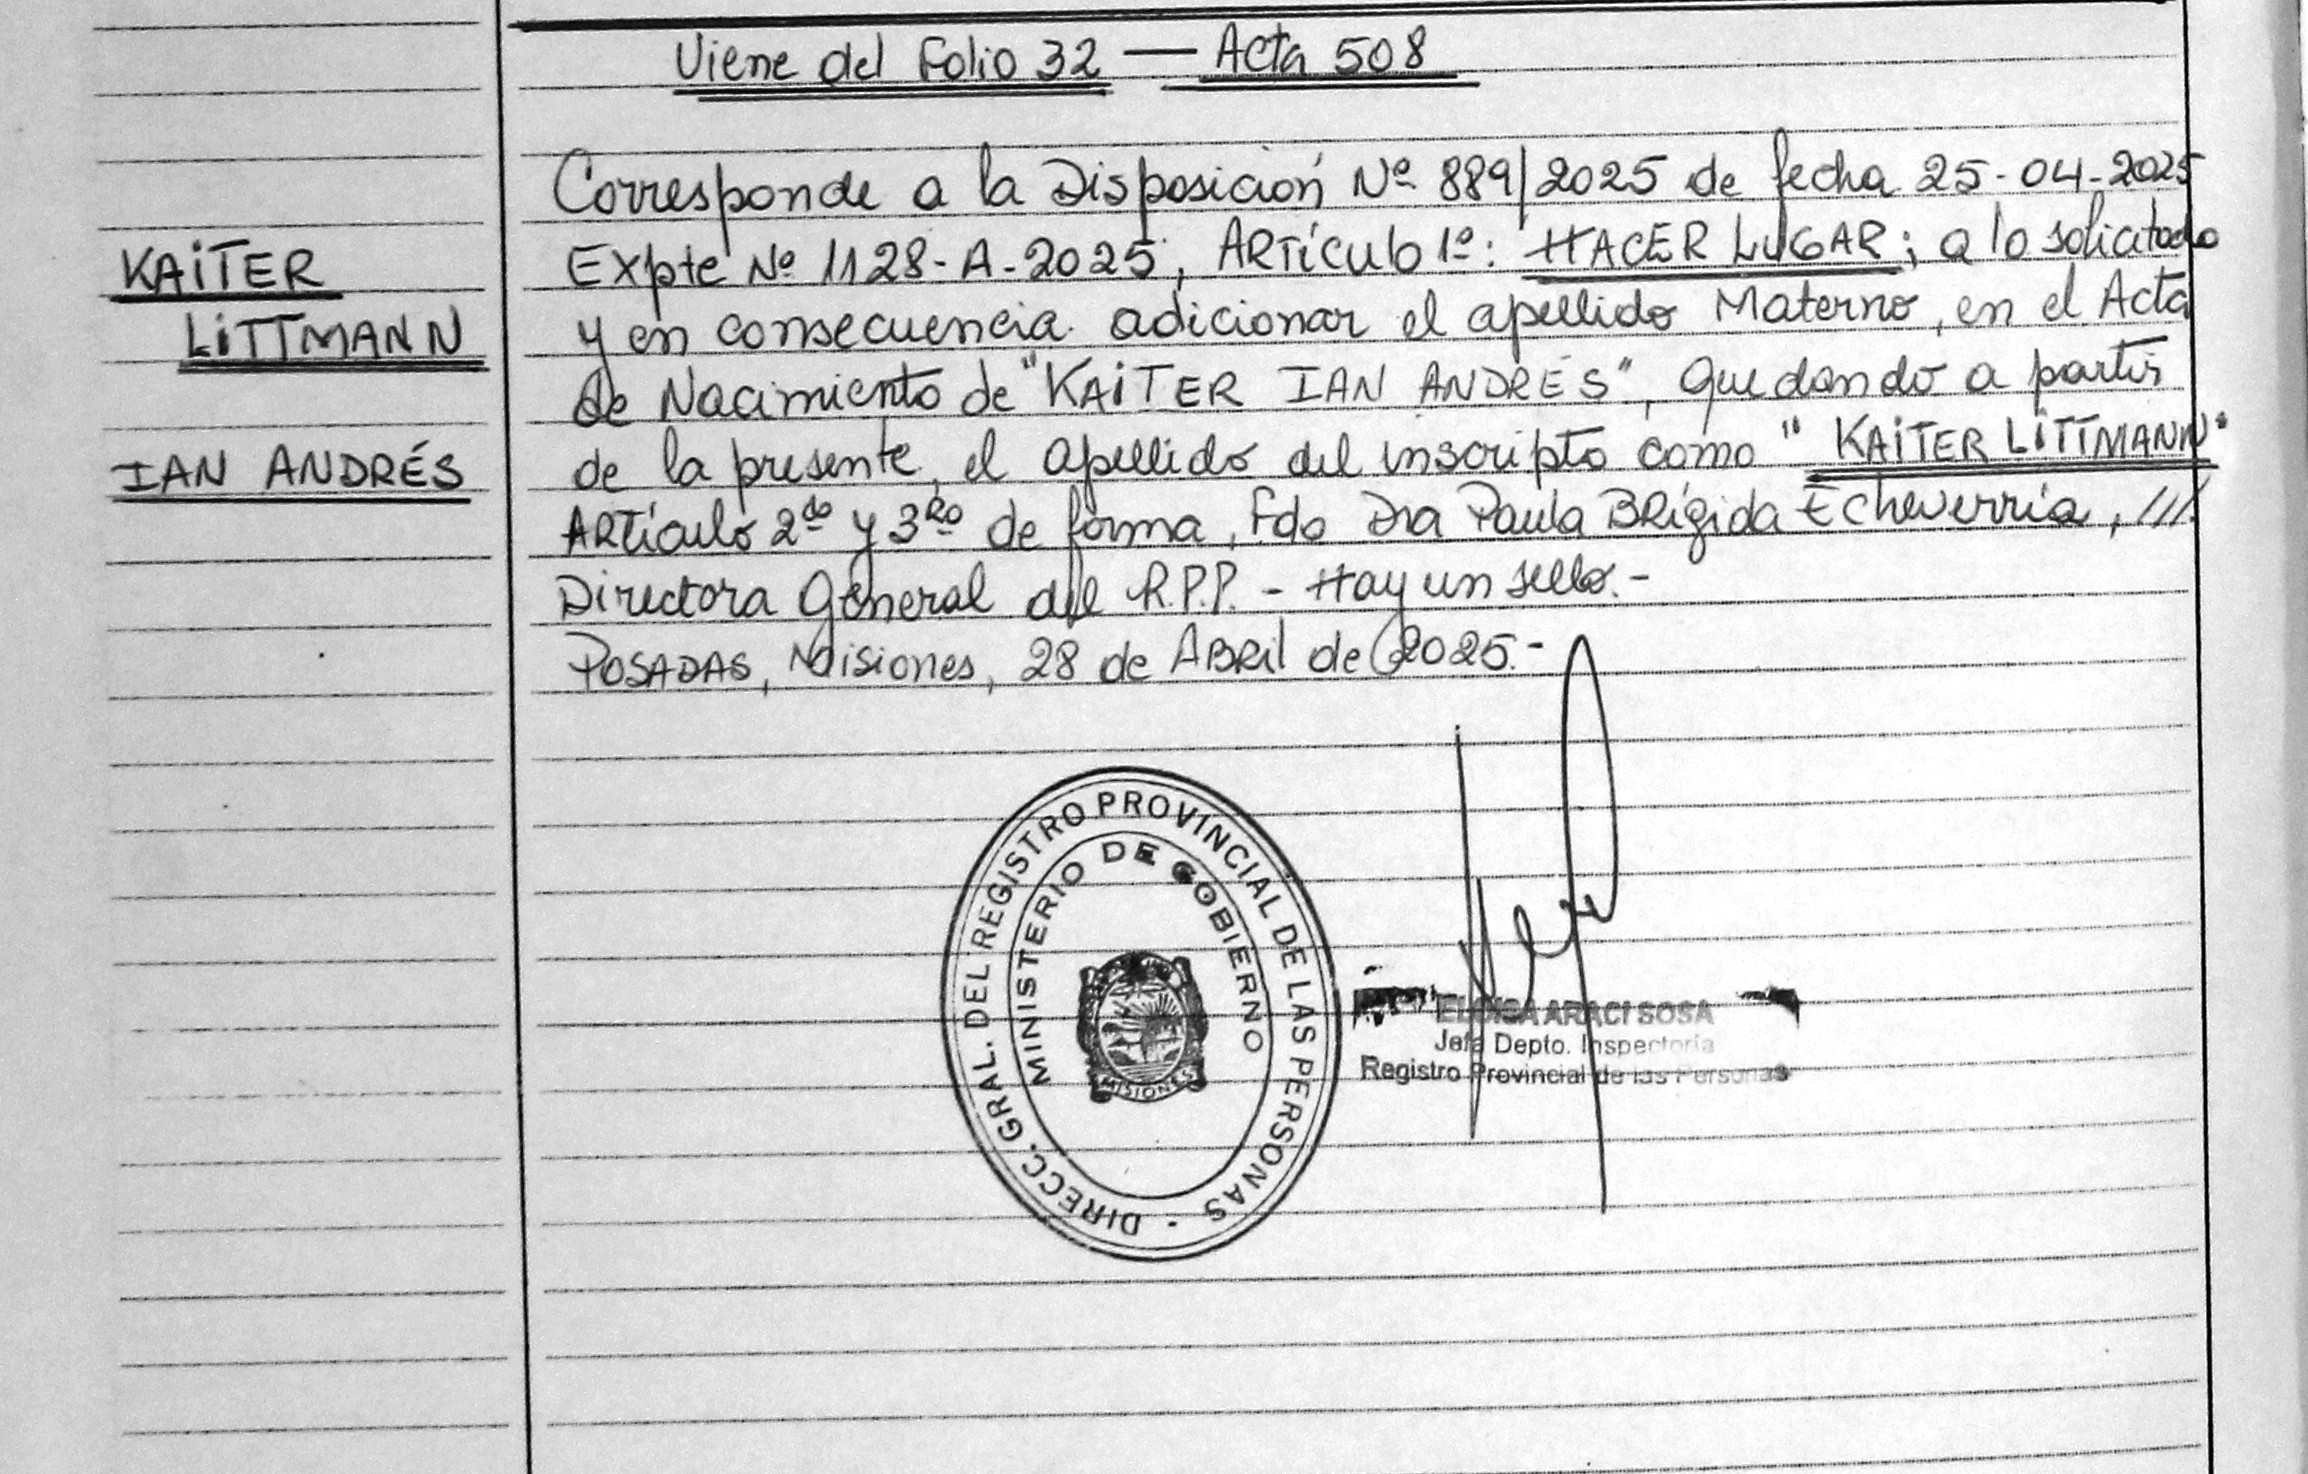 Viene del Folio 32 — Acta 508
Corresponde a la Disposición Nº 889/2025 de fecha 25-04-2025
KAITER
Expte Nº 1128-A-2025, ARTÍCULO 1º: HACER LUGAR; a lo solicitado
LITTMANN
y en consecuencia adicionar el apellido Materno, en el Acta
de Nacimiento de "KAITER IAN ANDRÉS", quedando a partir
IAN ANDRÉS
de la presente, el apellido del inscripto como "KAITER LITTMANN"
Artículo 2do y 3Ro de forma, Fdo Dra Paula BRígida Echeverría, ///
Directora General del R.P.P. - Hay un sello.-
POSADAS, Misiones, 28 de ABRil de 2025.-
DIRECC. GRAL. DEL REGISTRO PROVINCIAL DE LAS PERSONAS -
MINISTERIO DE GOBIERNO
MISIONES
ELOISA ARACI SOSA
Jefa Depto. Inspectoría
Registro Provincial de las Personas